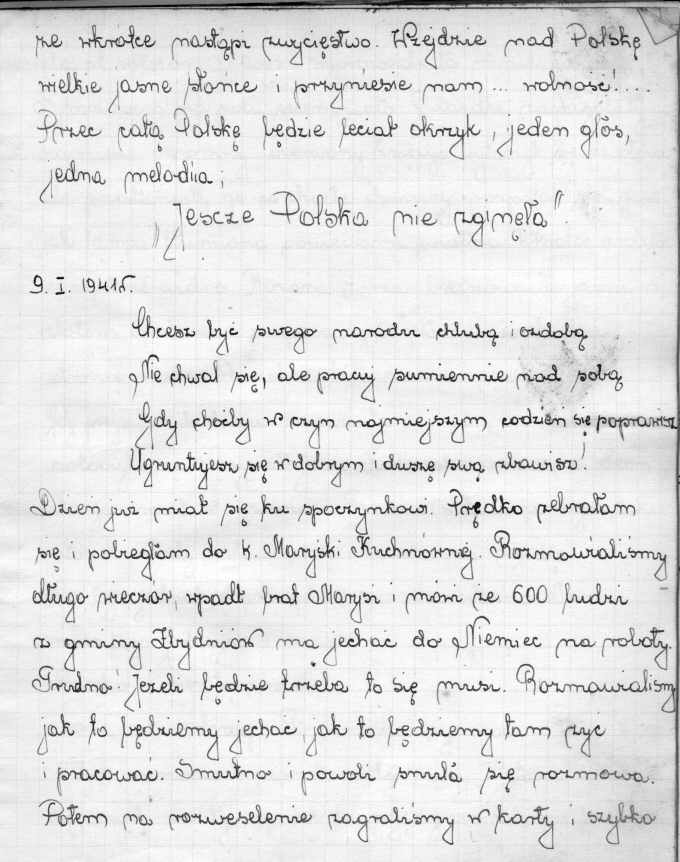 że wkrótce nastąpi zwycięstwo. Wzejdzie nad Polskę
wielkie jasne słońce i przyniesie nam... wolność!....
Przec całą Polskę będzie leciał okrzyk, jeden głos,
jedna melodiia;
„Jescze Polska nie zginęła".
9. I. 1941r.
Chcesz być swego narodu chlubą i ozdobą
Nie chwal się, ale pracuj sumiennie nad sobą
Gdy choćby w czyn najmiejszym codzień się poprawisz
Ugruntujesz się w dobrym i duszę swą zbawisz!
Dzień już miał się ku spoczynkowi. Prędko zebrałam
się i pobiegłam do k. Maryśki Kuchnównej. Rozmawialiśmy
długo wieczór, wpadł brat Marysi i mówi że 600 ludzi
z gminy Zbydniów ma jechać do Niemiec na roboty.
Trudno! Jeżeli będzie trzeba to się musi. Rozmawialiśmy
jak to będziemy jechać, jak to będziemy tam żyć
i pracować. Smutno i powoli snuła się rozmowa.
Potem na rozweselenie zagraliśmy w karty i szybko